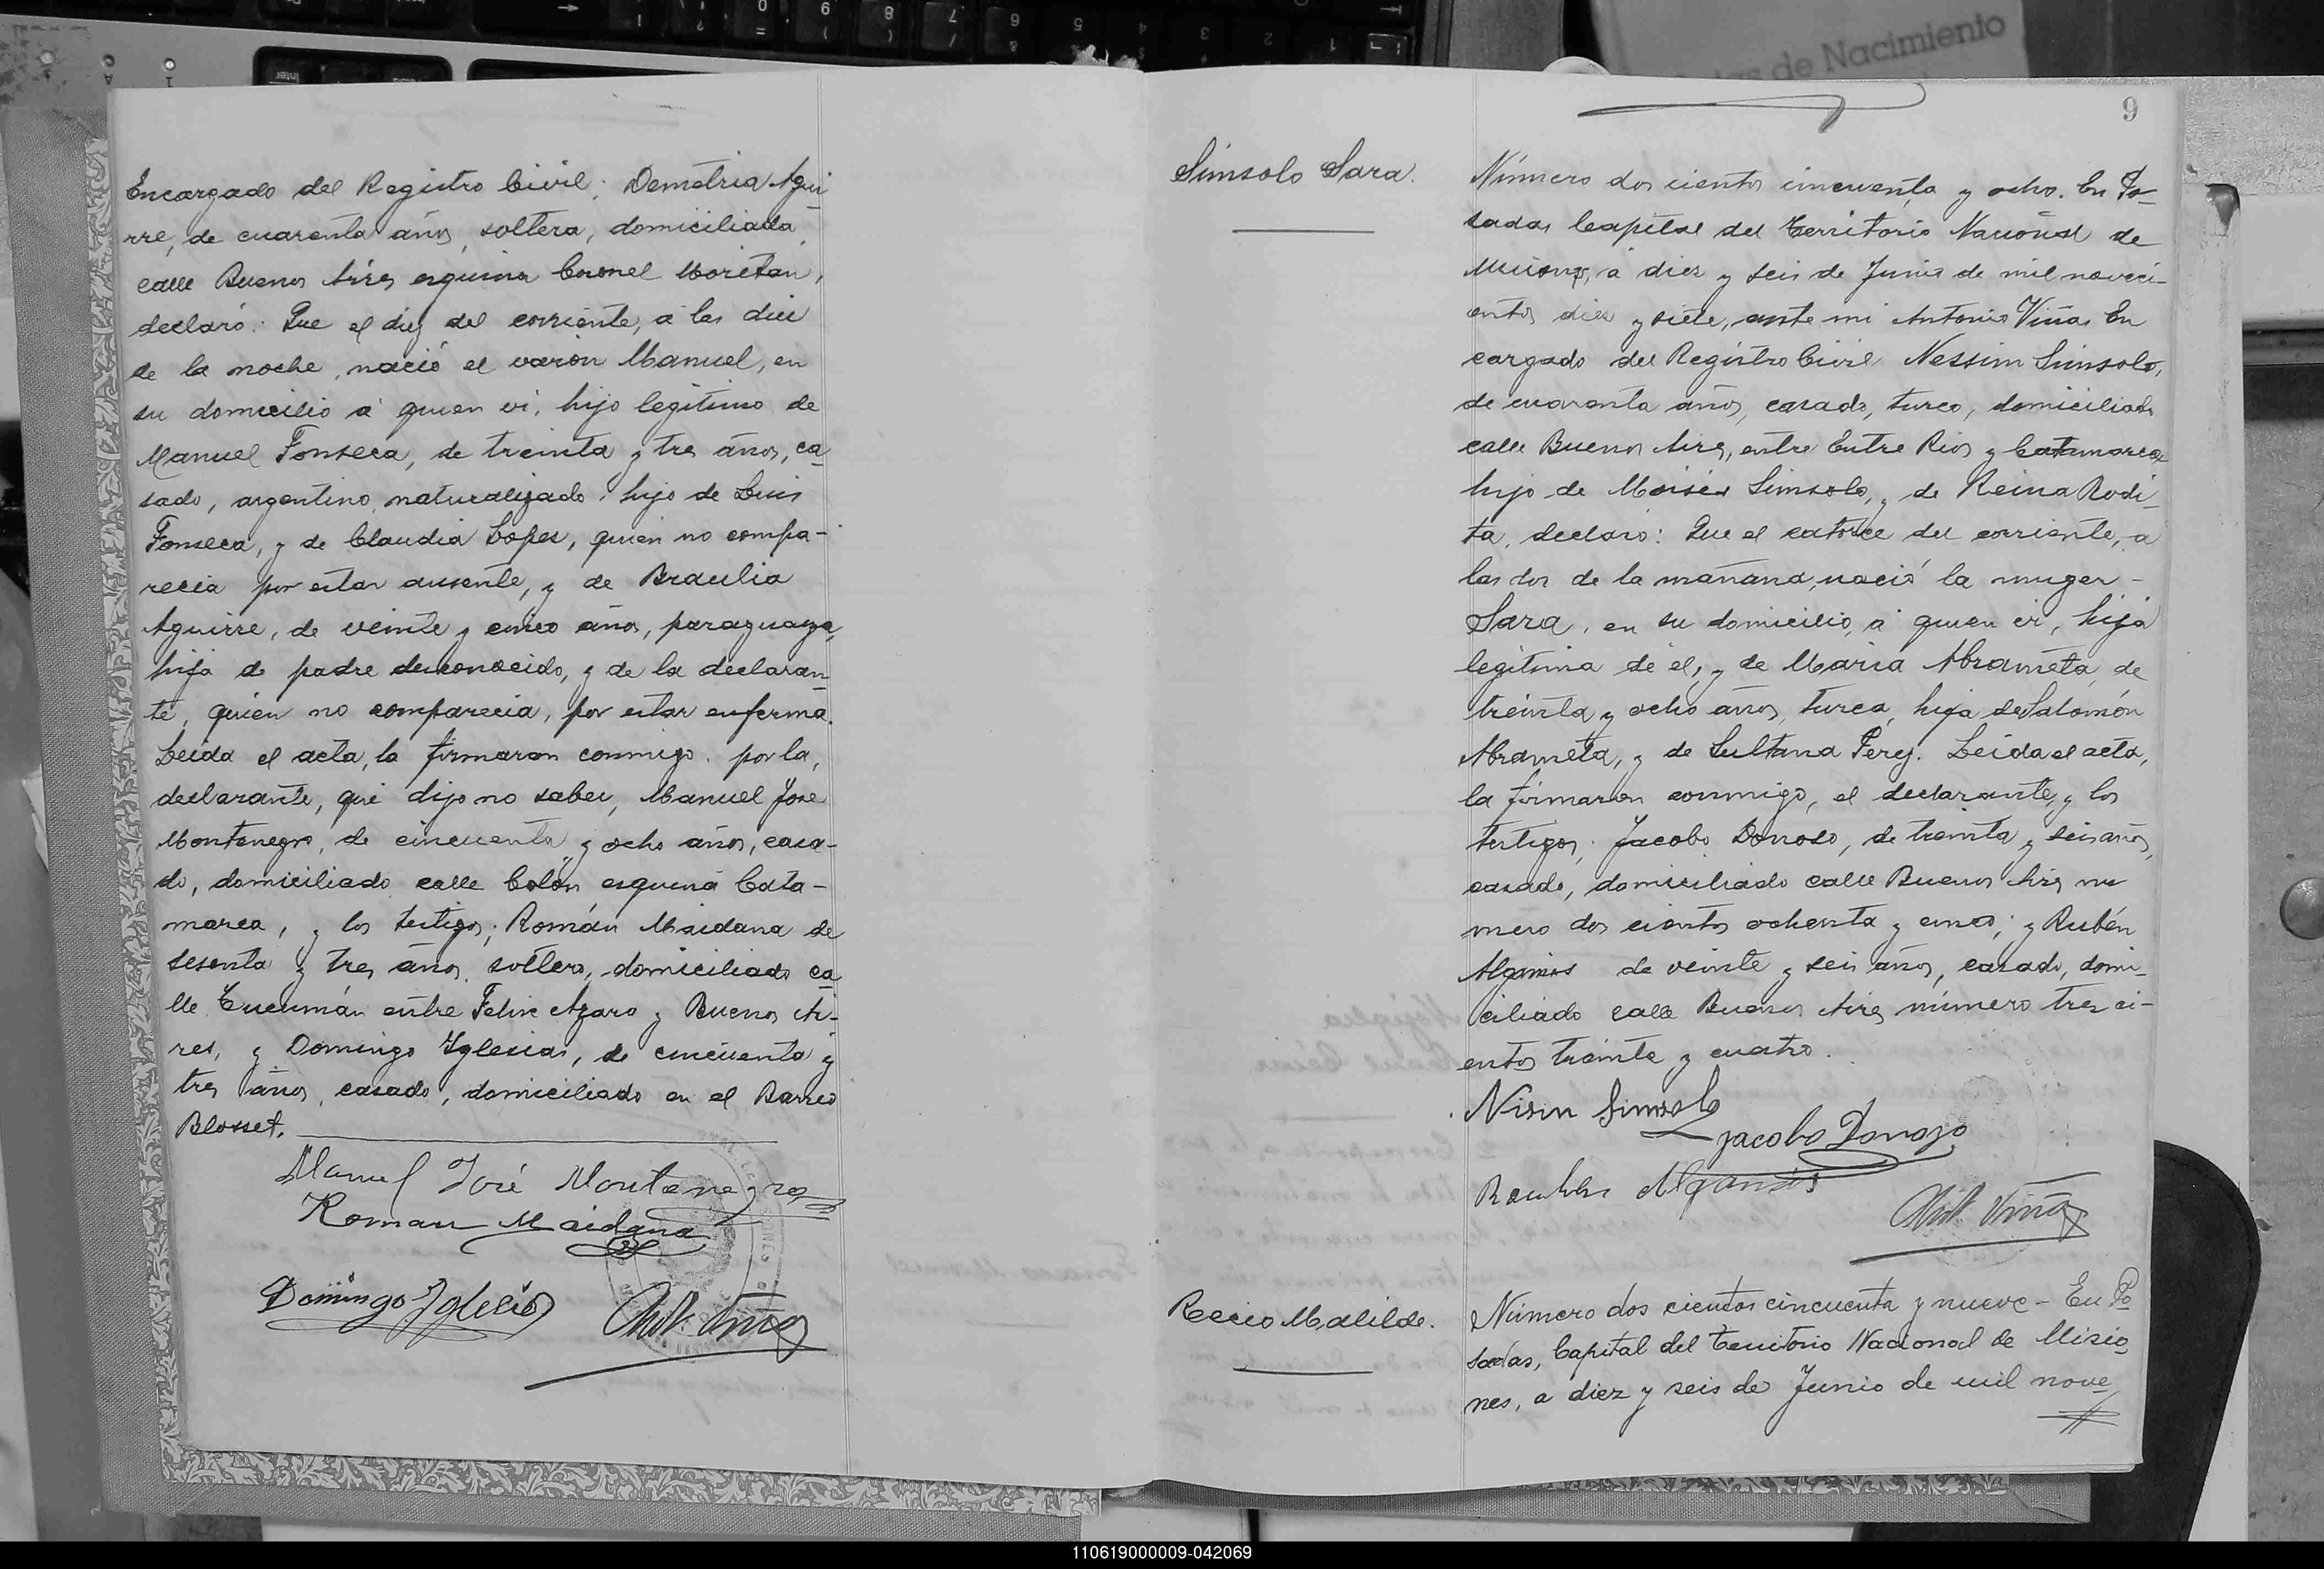 de Nacimiento
Encargado del Registro Civil; Demetria Agui
rre, de cuarenta años, soltera, domiciliada
calle Buenos Aires esquina Coronel Moritan,
declaró: Que el diez del corriente, a las diez
de la noche, nació el varón Manuel, en
su domicilio á quien vi, hijo legitimo de
Manuel Fonseca, de treinta y tres años, ca
sado, argentino, naturalizado, hijo de Luis
Fonseca, y de Claudia Lopes, quien no compa-
recia por estar ausente, y de Braulia
Aguirre, de veinte y cinco años, paraguaya,
hija de padre desconocido, y de la declaran
te, quien no comparecia, por estar enferma.
Leida el acta, la firmaron conmigo, por la,
declarante, que dijo no saber, Manuel José
Montenegro, de cincuenta y ocho años, casa-
do, domiciliado calle Colón esquina Cata-
marca, y los testigos; Román Maidana de
sesenta y tres años, soltero, domiciliado ca
lle Tucumán entre Felix Azara y Buenos Ai-
res, y Domingo Yglesias, de cincuenta y
tres años, casado, domiciliado en el Barrio
Blosset.
Manuel José Montenegro
Roman Maidana
Domingo Yglesias
Ant. Viñas
9
Simsolo Sara.
Número dos cientos cincuenta y ocho. En Po-
sadas Capital del Territorio Nacional de
Misiones, á diez y seis de Junio de mil noveci-
entos diez y siete, ante mi Antonio Viñas En
cargado del Registro Civil Nessim Simsolo,
de cuarenta años, casado, turco, domiciliado
calle Buenos Aires, entre Entre Rios y Catamarca
hijo de Moisés Simsolo, y de Reina Rodi-
ta, declaró: Que el catorce del corriente, a
las dos de la mañana, nació la muger -
Sara, en su domicilio, á quien vi, hija
legitima de él, y de Maria Abrameta, de
treinta y ocho años, turca, hija de Salomón
Abrameta, y de Sultana Perez. Leida el acta,
la firmaron conmigo, el declarante, y los
testigos; Jacobo Donoso, de treinta y seis años,
casado, domiciliado calle Buenos Aires nu
mero dos cientos ochenta y cinco; y Rubén
Algamis de veinte y seis años, casado, domi-
ciliado calle Buenos Aires número tres ci-
entos treinta y cuatro.
Nisin Simsolo
Jacobo Donozo
Algamis
Ant. Viñas
Recio Matilde.
Número dos cientos cincuenta y nueve - En Po
sadas, Capital del Territorio Nacional de Misio
nes, a diez y seis de Junio de mil nove
110619000009-042069